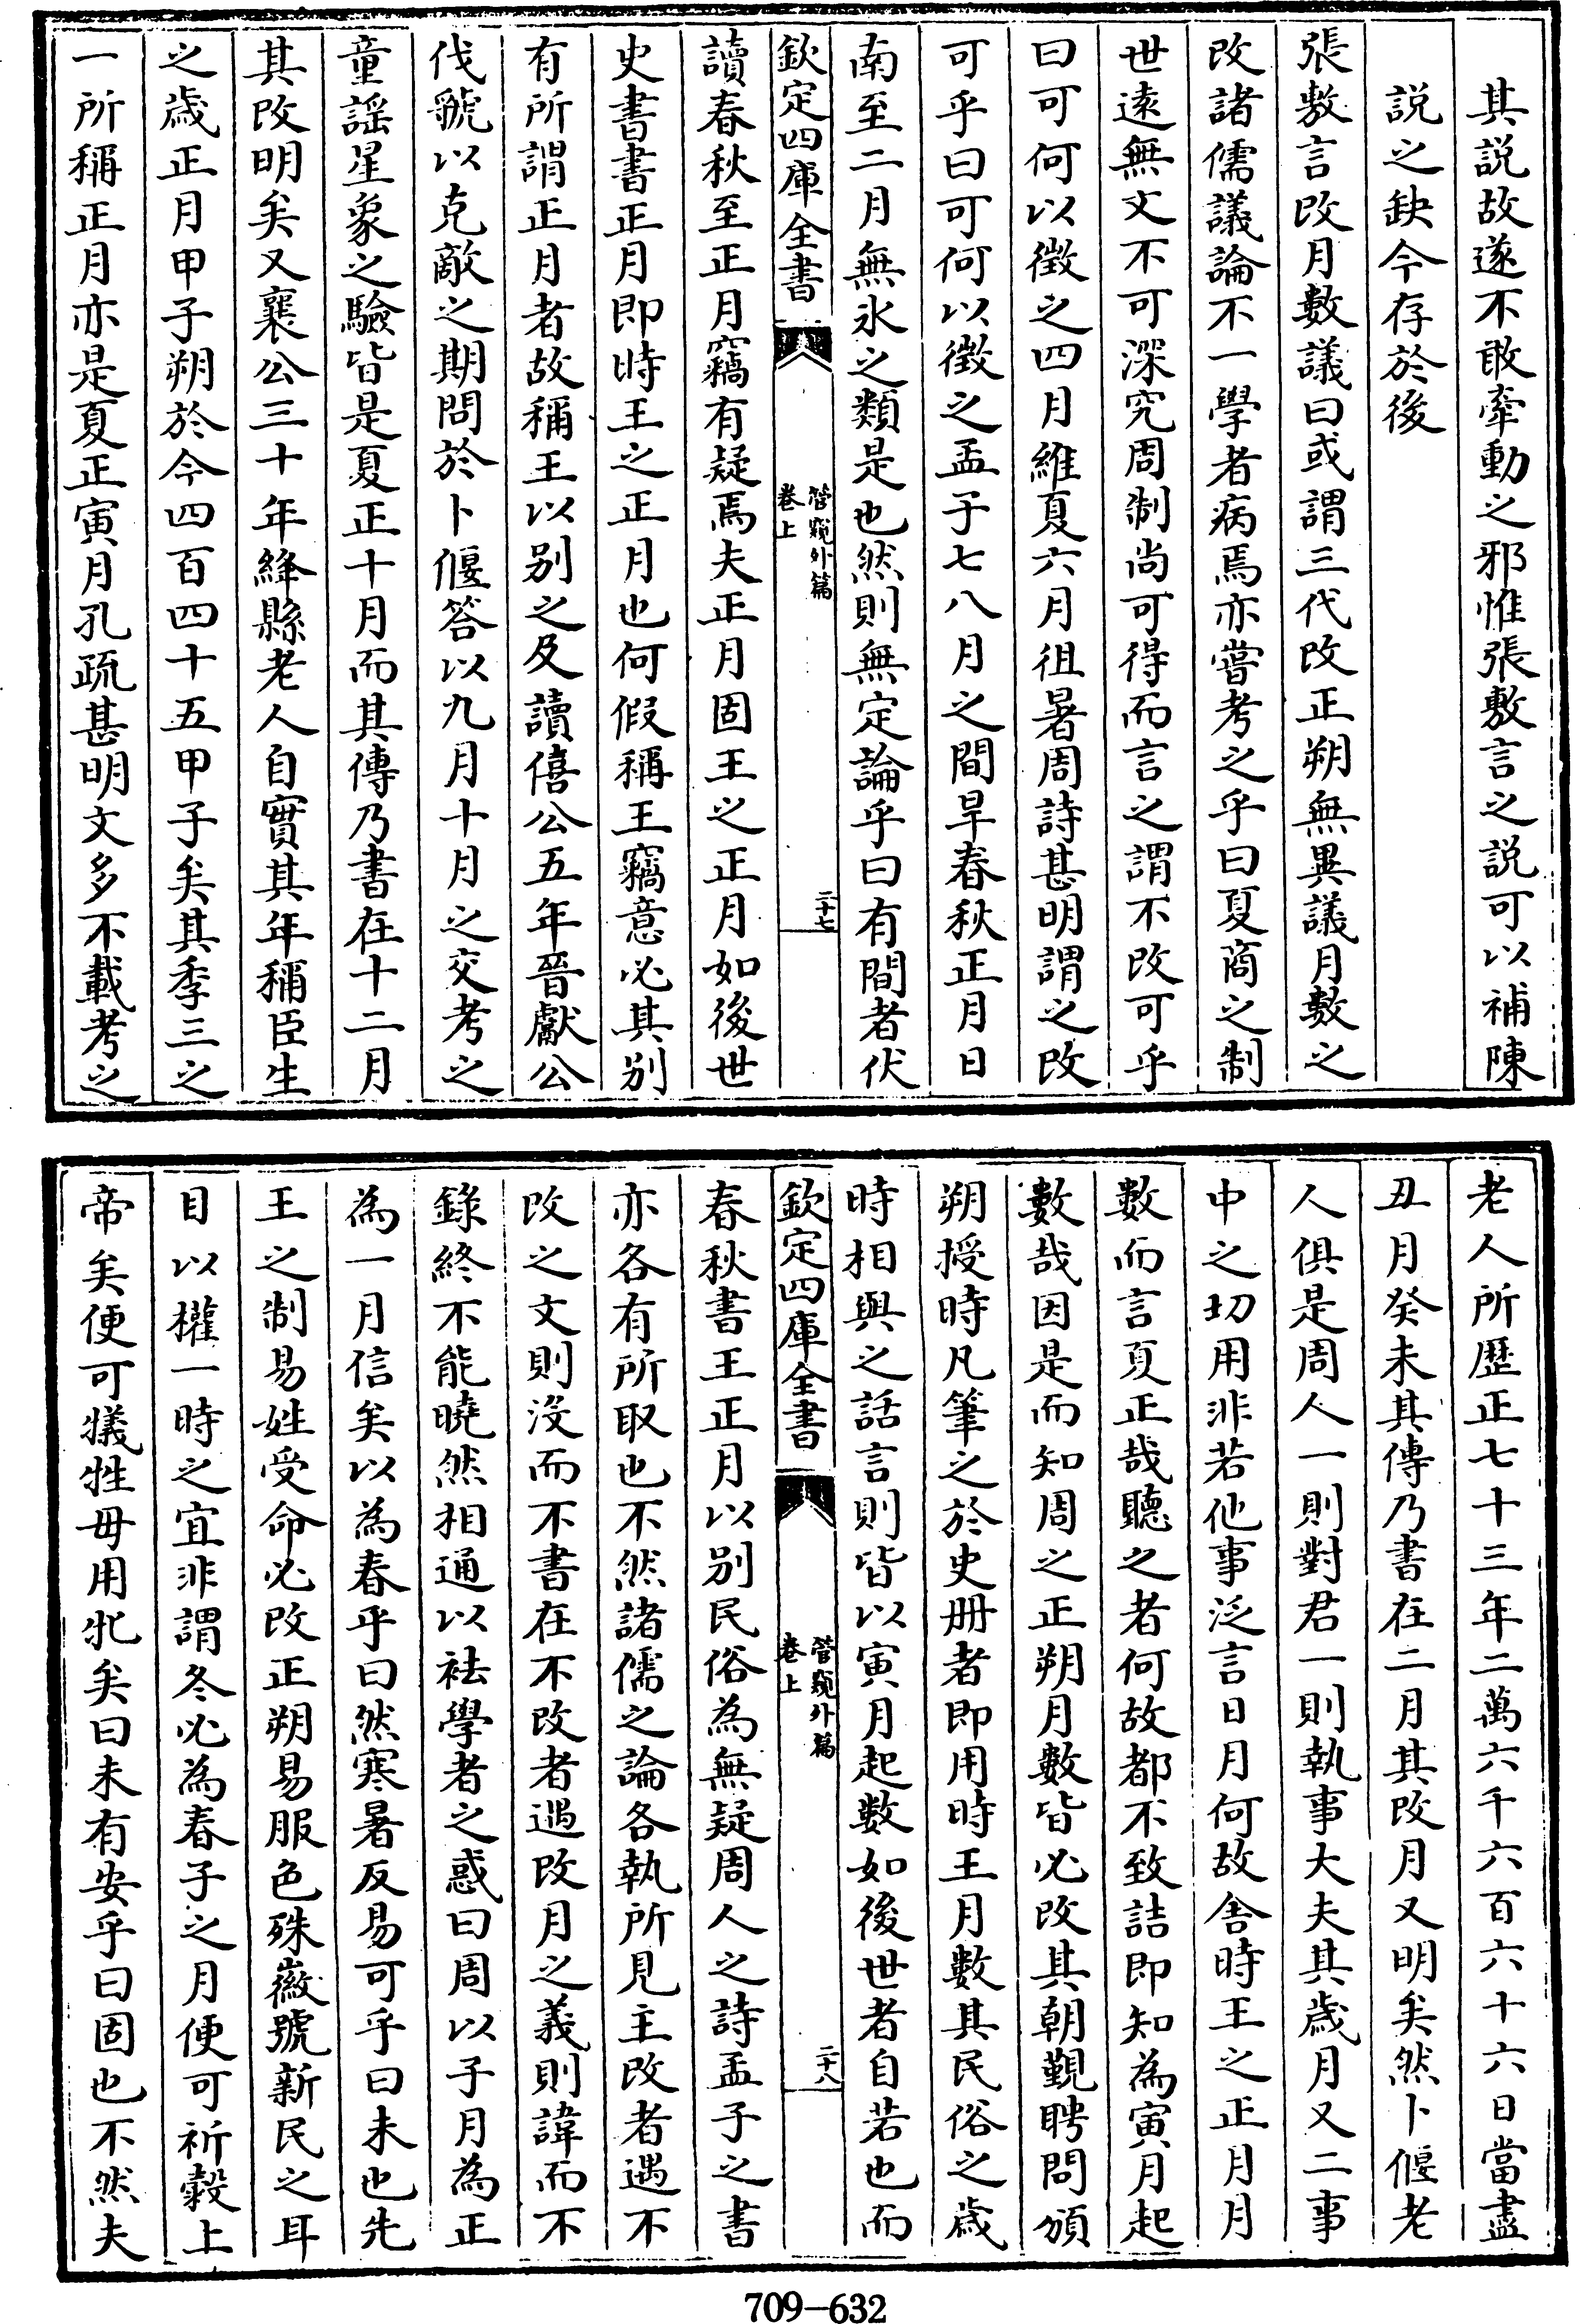 其説故遂不敢牽動之邪惟張敷言之説可以補陳
説之缺今存於後
張敷言改月數議曰或謂三代改正朔無異議月數之
改諸儒議論不一學者病焉亦嘗考之乎曰夏商之制
世遠無文不可深究周制尚可得而言之謂不改可乎
曰可何以徴之四月維夏六月徂暑周詩甚明謂之改
可乎曰可何以徴之孟子七八月之間旱春秋正月日
南至二月無氷之類是也然則無定論乎曰有間者伏
欽定四庫全書
管窺外篇
卷上
二十七
讀春秋至正月竊有疑焉夫正月固王之正月如後世
史書書正月即時王之正月也何假稱王竊意必其别
有所謂正月者故稱王以别之及讀僖公五年晉獻公
伐虢以克敵之期問於卜偃答以九月十月之交考之
童謡星象之驗皆是夏正十月而其傳乃書在十二月
其改明矣又襄公三十年絳縣老人自實其年稱臣生
之歲正月甲子朔於今四百四十五甲子矣其季三之
一所稱正月亦是夏正寅月孔疏甚明文多不載考之
老人所歴正七十三年二萬六千六百六十六日當盡
丑月癸未其傳乃書在二月其改月又明矣然卜偃老
人俱是周人一則對君一則執事大夫其歲月又二事
中之切用非若他事泛言日月何故舍時王之正月月
數而言夏正哉聽之者何故都不致詰即知為寅月起
數哉因是而知周之正朔月數皆必改其朝覲聘問頒
朔授時凡筆之於史册者即用時王月數其民俗之歲
時相與之話言則皆以寅月起數如後世者自若也而
欽定四庫全書
管窺外篇
卷上
二十八
春秋書王正月以别民俗為無疑周人之詩孟子之書
亦各有所取也不然諸儒之論各執所見主改者遇不
改之文則没而不書在不改者遇改月之義則諱而不
錄終不能曉然相通以袪學者之惑曰周以子月為正
為一月信矣以為春乎曰然寒暑反易可乎曰未也先
王之制易姓受命必改正朔易服色殊徽號新民之耳
目以權一時之宜非謂冬必為春子之月便可祈穀上
帝矣便可犧牲毋用牝矣曰未有安乎曰固也不然夫
709—632